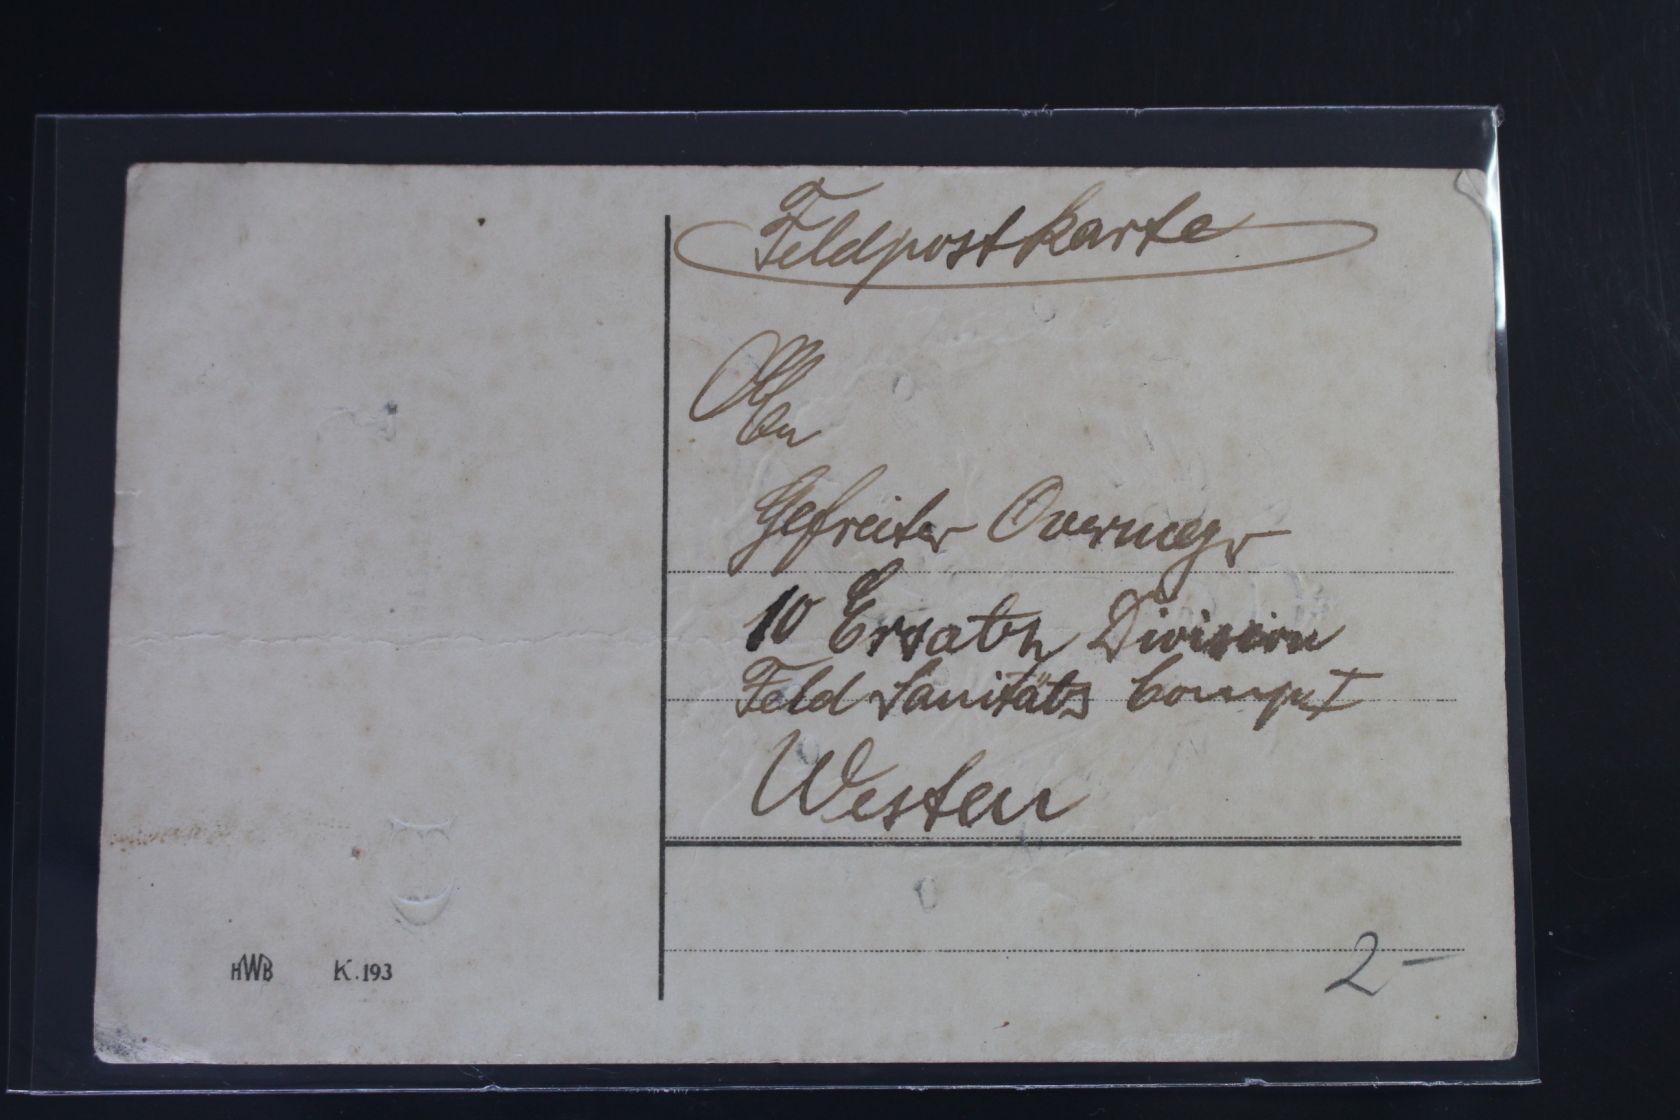 Feldpostkarte
An
Gefreiter Overmeyr
10 Ersatz Division
Feld Sanitäts Comp I
Westen
HWB K.193
2-